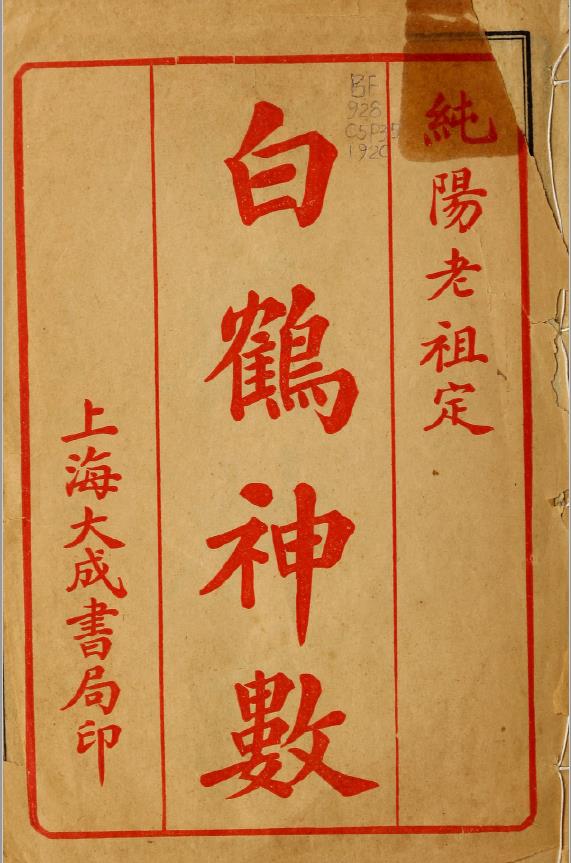 純陽老祖定
白鶴神數
上海大成書局印
BF
928
1920